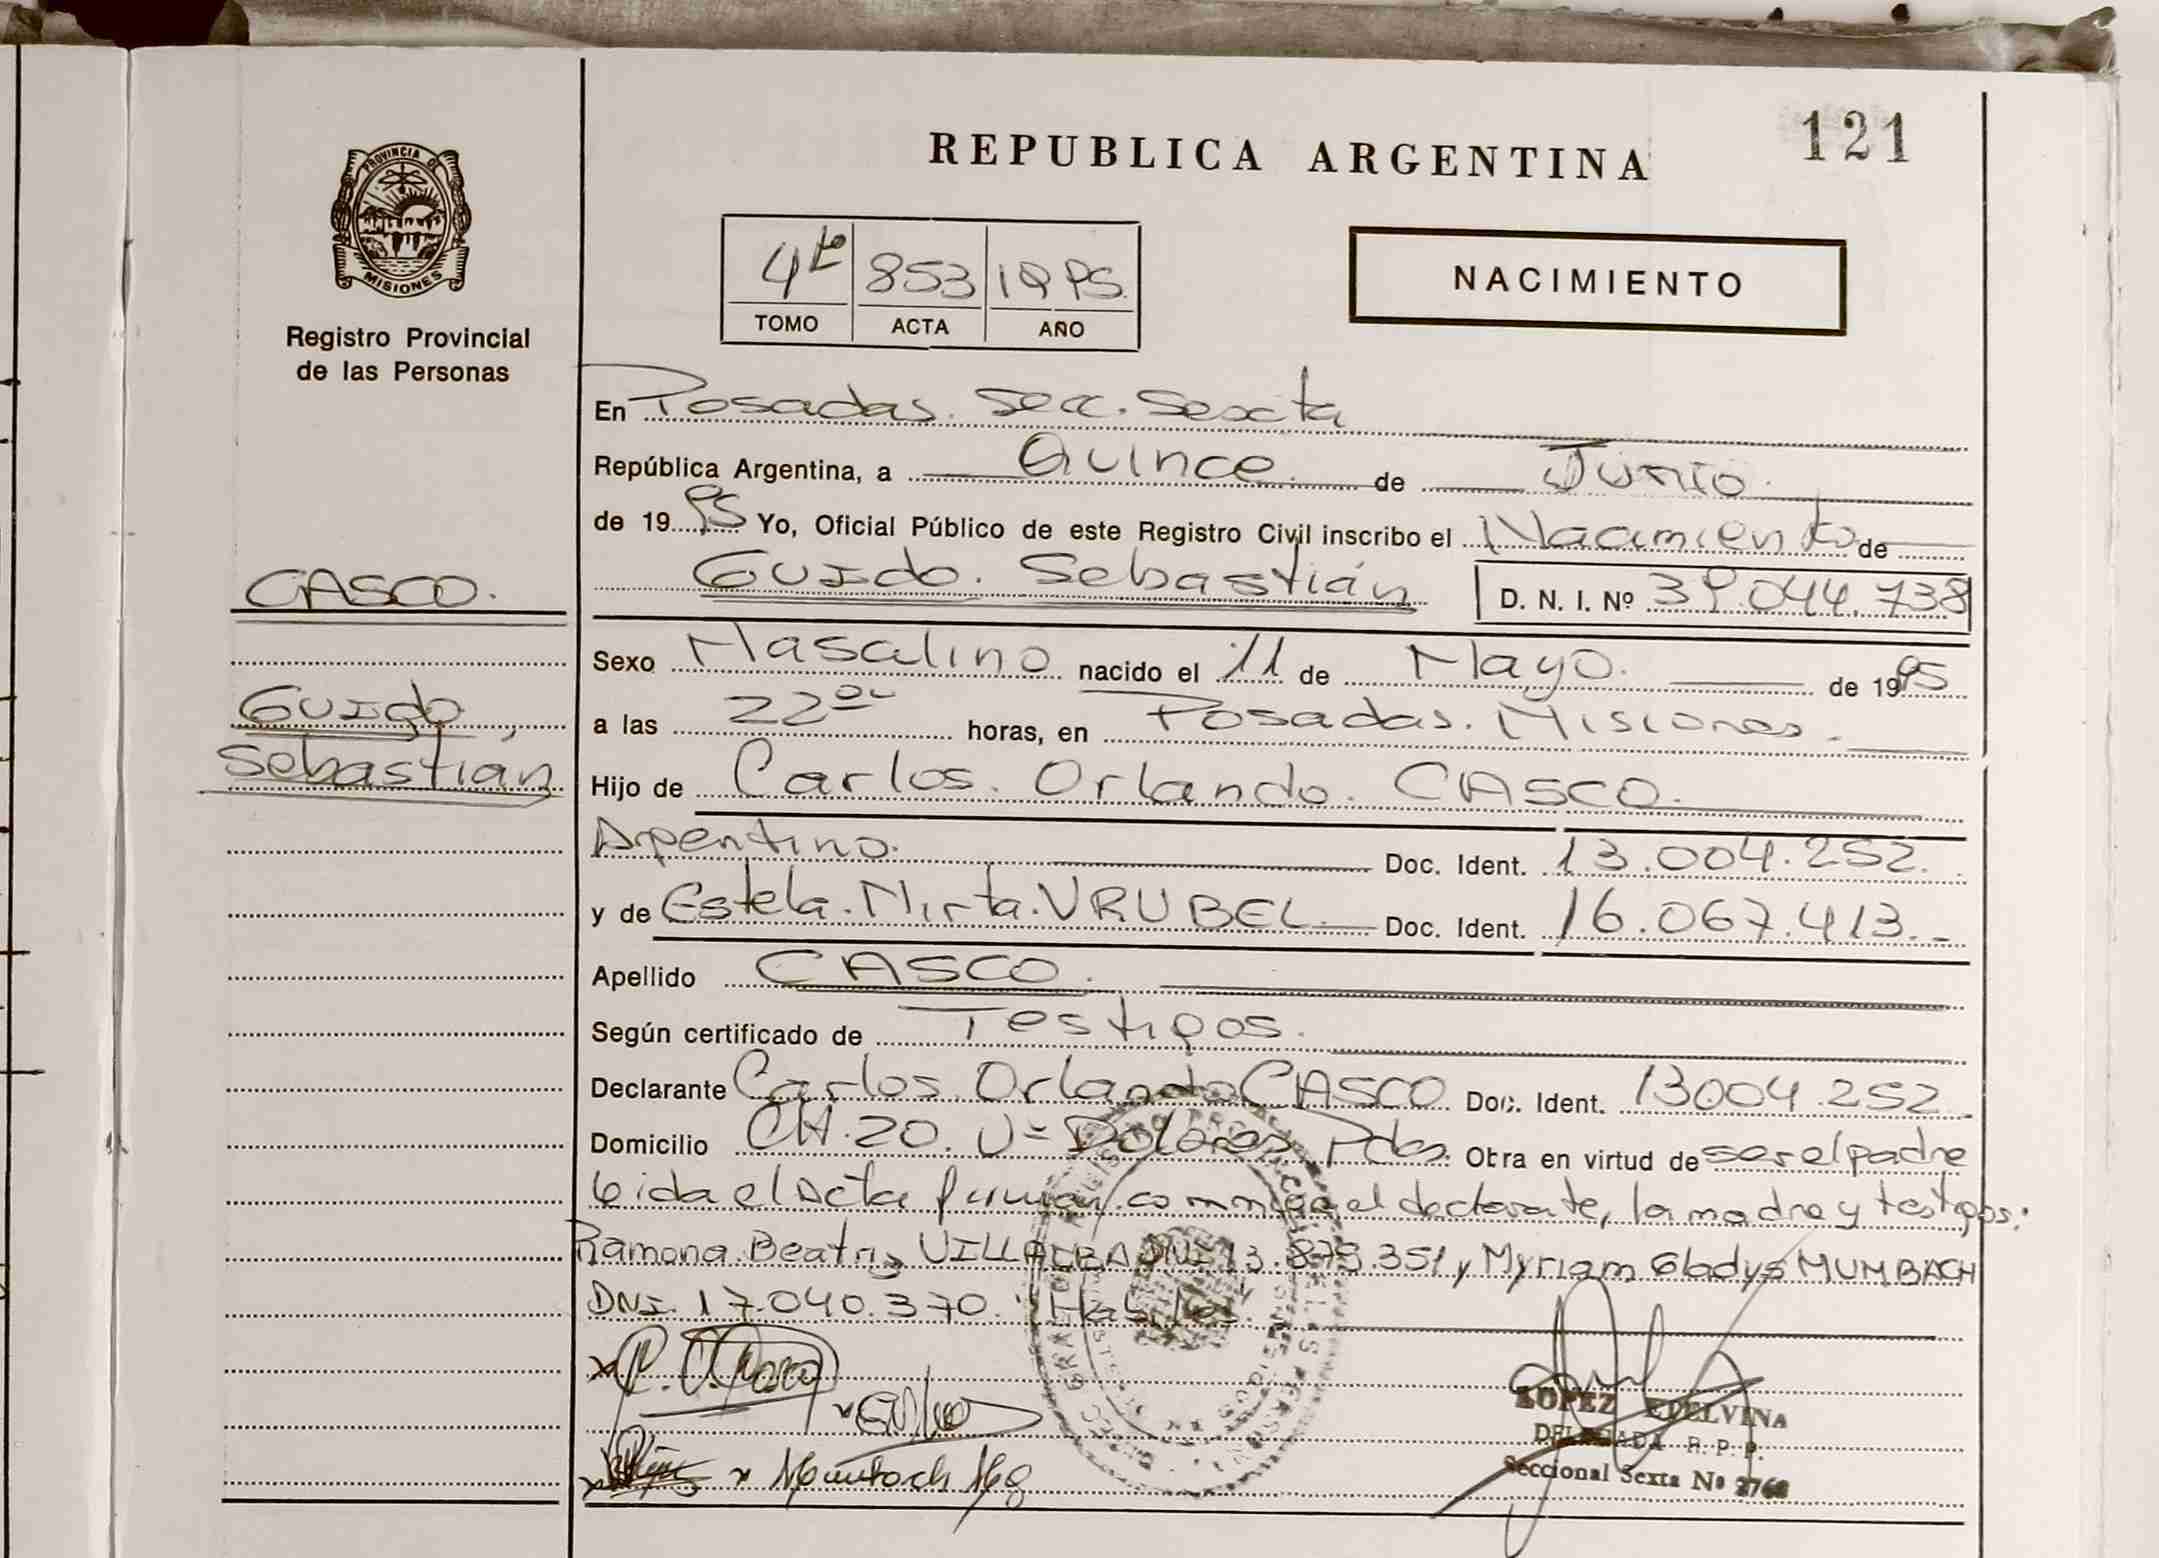 121
REPUBLICA ARGENTINA
PROVINCIA DE
MISIONES
Registro Provincial
de las Personas
4to 853 1995.
TOMO ACTA AÑO
NACIMIENTO
En Posadas. Secc. Sexta
República Argentina, a Quince de Junio.
de 1995 Yo, Oficial Público de este Registro Civil inscribo el Nacimiento de
Guido. Sebastián D. N. I. Nº 39.044.738
CASCO.
Guido,
Sebastián
Sexo Masculino nacido el 11 de Mayo. de 1995
a las 22 horas, en Posadas. Misiones.
Hijo de Carlos. Orlando. CASCO.
Argentino. Doc. Ident. 13.004.252.
y de Estela. Mirta. VRUBEL. Doc. Ident. 16.067.413.-
Apellido CASCO.
Según certificado de Testigos.
Declarante Carlos. Orlando CASCO Doc. Ident. 13004.252
Domicilio CH. 20. Dolores. Pdas. Obra en virtud de ser el padre
Leida el acta firman conmigo el declarante, la madre y testigos:
Ramona Beatriz VILLALBA DNI 13.879.351 y Myriam Gladys MUMBACH
DNI. 17.040.370.
LOPEZ EDELVINA
DELEGADA R. P. P.
Seccional Sexta Nº 2768